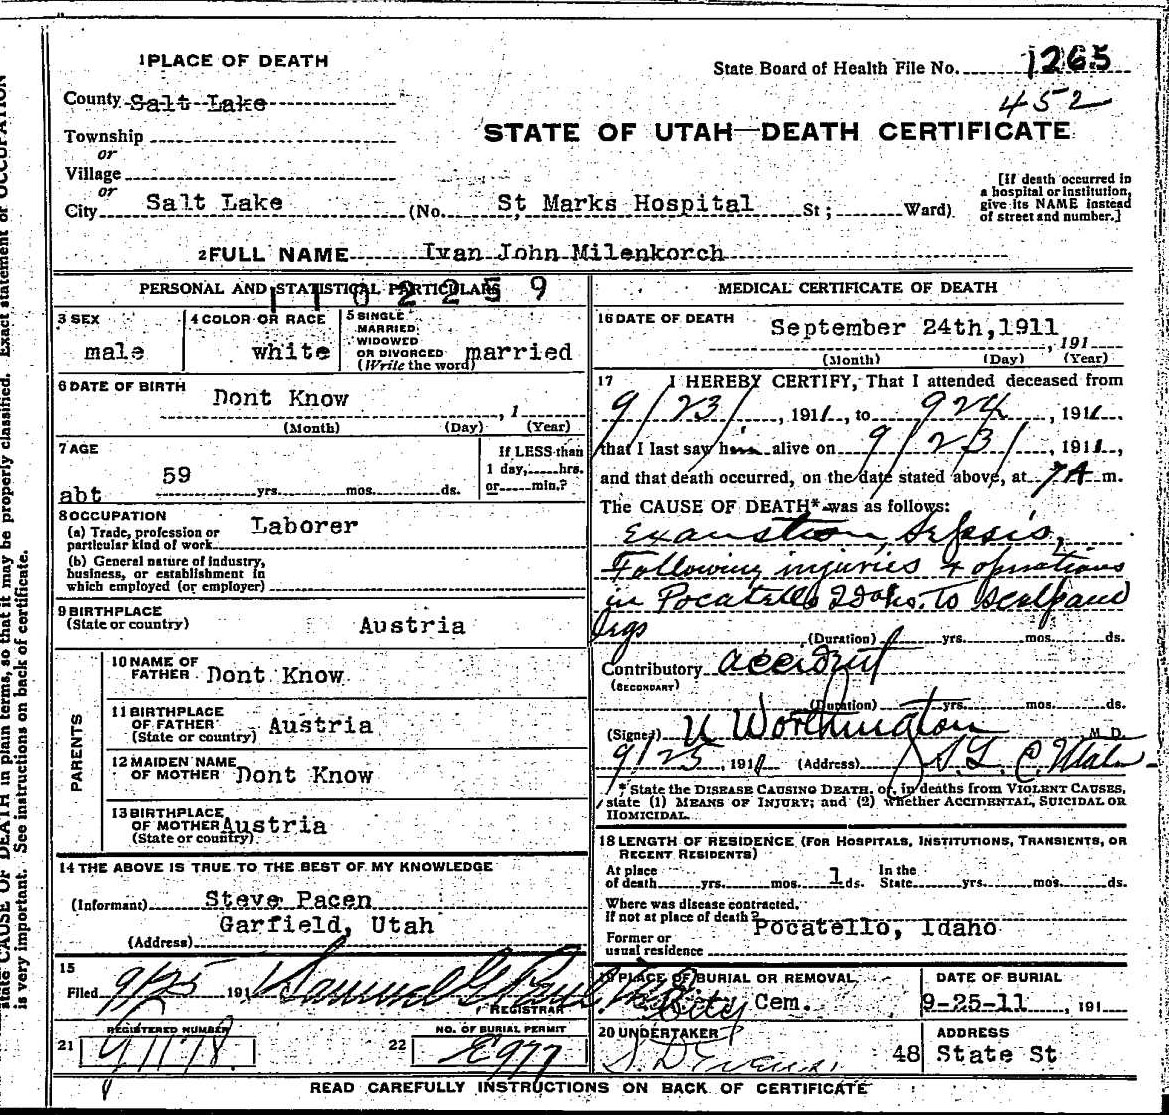 1 PLACE OF DEATH
State Board of Health File No. 1265
452
County Salt Lake
Township
or
STATE OF UTAH—DEATH CERTIFICATE
Village
or
City Salt Lake (No. St Marks Hospital St; Ward)
[If death occurred in
a hospital or institution,
give its NAME instead
of street and number.]
2 FULL NAME Ivan John Milenkorch
PERSONAL AND STATISTICAL PARTICULARS
1102259
3 SEX
male
4 COLOR OR RACE
white
5 SINGLE
MARRIED
WIDOWED
OR DIVORCED
(Write the word)
married
6 DATE OF BIRTH
Dont Know
, 1
(Month) (Day) (Year)
7 AGE
abt 59 yrs. mos. ds.
If LESS than
1 day, hrs.
or min.?
8 OCCUPATION
(a) Trade, profession or
particular kind of work
Laborer
(b) General nature of industry,
business, or establishment in
which employed (or employer)
9 BIRTHPLACE
(State or country)
Austria
PARENTS
10 NAME OF
FATHER
Dont Know
11 BIRTHPLACE
OF FATHER
(State or country)
Austria
12 MAIDEN NAME
OF MOTHER
Dont Know
13 BIRTHPLACE
OF MOTHER
(State or country)
Austria
14 THE ABOVE IS TRUE TO THE BEST OF MY KNOWLEDGE
(Informant) Steve Pacen
Garfield, Utah
(Address)
15
Filed 9/25 191 Samuel G Paul
REGISTRAR
REGISTERED NUMBER
21
NO. OF BURIAL PERMIT
22 E977
MEDICAL CERTIFICATE OF DEATH
16 DATE OF DEATH
September 24th, 1911
, 191
(Month) (Day) (Year)
17 I HEREBY CERTIFY, That I attended deceased from
9/23/, 1911, to 924, 1911,
that I last saw him alive on 9/23/, 1911,
and that death occurred, on the date stated above, at 7A m.
The CAUSE OF DEATH* was as follows:
Exaustion, Sepsis,
Following injuries & operations
in Pocatello Idaho. to scalp and
legs
(Duration) yrs. mos. ds.
Contributory accident
(SECONDARY)
(Duration) yrs. mos. ds.
(Signed) U Worthington M D.
9/25, 1911 (Address) S. L. C. Utah
* State the DISEASE CAUSING DEATH, or, in deaths from VIOLENT CAUSES,
state (1) MEANS OF INJURY; and (2) whether ACCIDENTAL, SUICIDAL OR
HOMICIDAL.
18 LENGTH OF RESIDENCE (FOR HOSPITALS, INSTITUTIONS, TRANSIENTS, OR
RECENT RESIDENTS)
At place
of death yrs. mos. 1 ds.
In the
State yrs. mos. ds.
Where was disease contracted,
If not at place of death?
Pocatello, Idaho
Former or
usual residence
19 PLACE OF BURIAL OR REMOVAL
City Cem.
DATE OF BURIAL
9-25-11, 191
20 UNDERTAKER
S. D. Evans
ADDRESS
48 State St
READ CAREFULLY INSTRUCTIONS ON BACK OF CERTIFICATE
state CAUSE OF DEATH in plain terms, so that it may be properly classified. Exact statement of OCCUPATION
is very important. See instructions on back of certificate.